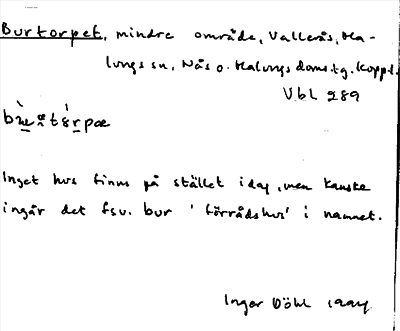 Burtorpet, mindre område, Vallerås, Ma-
lungs sn, Nås o. Malungs doms.tg. Koppl.
Vbl 289
Inget hus finns på stället idag, men kanske
ingår det fsv. bur 'förrådshus' i namnet.
Inger Döhl 1994